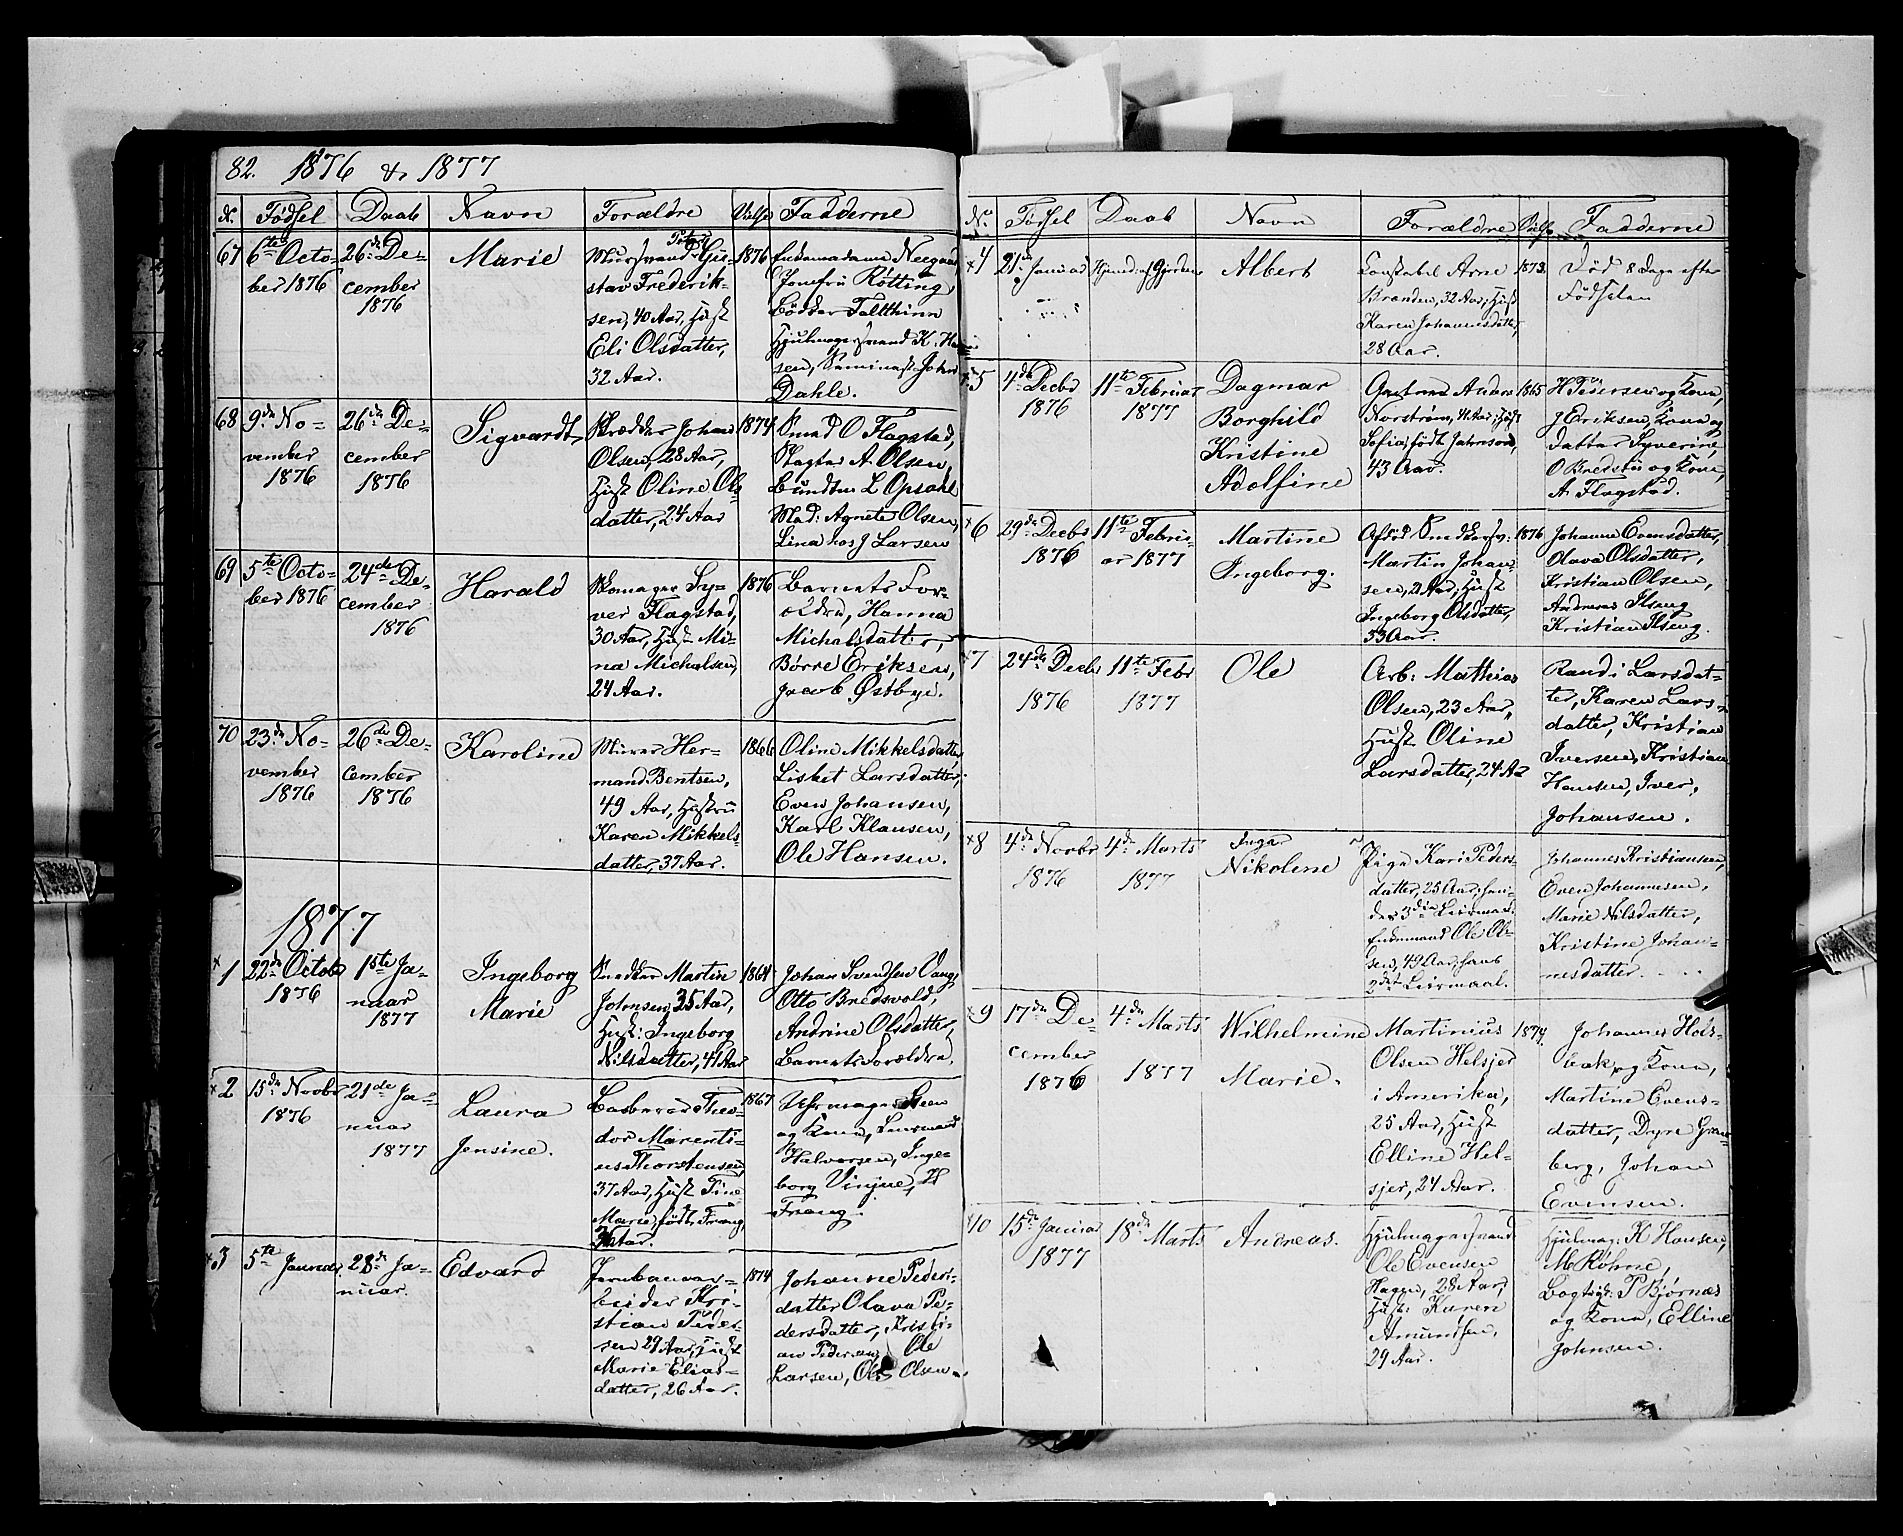 82. 1876 & 1877
N. Fødsel Daab Navn Forældre Vielse Fadderne
67 6te Octo-
ber 1876
26de De-
cember
1876
Marie
Peter Gu-
stav Frederik-
sen, 40 Aar, Hust
Eli Olsdatter,
32 Aar.
1876
Jomfru Røtting
Hjulmagersvend K. Han-
sen, Seminarist John
Dahle.
68 9de No-
vember
1876
26de De-
cember
1876
Sigvardt
Skrædder Johan
Olsen, 28 Aar,
Hust Oline Ols-
datter, 24 Aar
1874
Smed O Flagstad,
Slagter A. Olsen,
L Opsahl
Mad: Agnete Olsen,
Lina hos J Larsen
69 5te Octo-
ber 1876
24de De-
cember
1876
Harald
Skomager Sy-
ver Flagstad,
30 Aar, Hust Mi-
na Michelsen,
24 Aar.
1876
Barnets For-
ældre, Hanna
Michelsdatter,
Børre Eriksen,
Jacob Østbye.
70 23de No-
vember
1876
26de De-
cember
1876
Karoline
Murer Her-
mand Bentsen,
49 Aar, Hustru
Karen Mikkels-
datter, 37 Aar.
1866
Oline Mikkelsdatter,
Lisbet Larsdatter,
Even Johansen,
Karl Klausen,
Ole Hansen.
1877
1 22de Octob
1876
1ste Ja-
nuar
1877
Ingeborg
Marie
Snedker Martin
Johnsen, 35 Aar,
Hust: Ingeborg
Nilsdatter, 41 Aar
1864
Johan Svendsen Vang,
Otto Bredsvold,
Andrine Olsdatter,
Barnets Forældre.
2 15de Novbr
1876
21de Ja-
nuar
1877
Laura
Jensine.
Barberer Theo-
dor Marenti-
us Thorstensen,
37 Aar, Hust Tine
Marie, født Frang,
1867
Uhrmager Steen
og Kone,
Halvorsen, Inge-
borg Vinjue, H
Frang.
3 5te Januar
28de Ja-
nuar.
Edvard
Jernbanear-
beider Kri-
stian Peder-
sen 29 Aar, Hust
Marie Elias-
datter, 26 Aar.
1874
Johanne Peders-
datter Olava Pe-
dersdatter, Kristi-
an Pedersen, Ole
Larsen, Ole Olsen.
No. Fødsel Daab Navn Forældre Vielse Fadderne
4 21de Januar
Hjemd. af Gjordem
Albert
Constabel Arne
Branden, 32 Aar, Hust
Karen Johannesdatter,
28 Aar.
1873.
Død 8 Dage efter
Fødselen
5 4de Decbr
1876
11te Februar
1877
Dagmar
Borghild
Kristine
Adolfine
Gartner Anders
Norstrøm, 41 Aar, Hust
Sofia, født
43 Aar.
1865
H Pedersen og Kone,
J Eriksen, Kone og
datter Syverine,
O Bredstu og Kone,
A Flagstad.
6 29de Decbr
1876
11te Febru-
ar 1877
Martine
Ingeborg.
Afdød Snedkersv:
Martin Johan-
sen, 21 Aar, Hust
Ingeborg Olsdatter,
33 Aar.
1876
Johanne Evensdatter,
Olava Olsdatter,
Kristian Olsen,
Andreas Ilseng
Kristian Ilseng.
7 24de Decbr
1876
11te Febr
1877
Ole
Arb: Mathias
Olsen, 23 Aar,
Hust Oline
Larsdatter, 24 Aar
Randi Larsdat-
ter, Karen Lars-
datter, Kristian
Iversen, Kristian
Hansen, Iver
Johansen.
8 4de Novbr
1876
4de Marts
1877
Inga
Nikoline
Pige Kari Peders-
datter, 25 Aar, hen-
des 3die Leiermaal.
Enkemand Ole Ol-
sen, 49 Aar, hans
2det Leiermaal.
Johannes Kristiansen,
Even Johannesen,
Marie Nilsdatter,
Kristine Johan-
nesdatter.
9 17de De-
cember
1876
4de Marts
1877
Wilhelmine
Marie.
Martinius
Olsen Helsjer
i Amerika,
25 Aar, Hust
Elline Hel-
sjer, 24 Aar.
1874.
Johannes Hols-
bak og Kone,
Martine Evens-
datter, Dyre Gran-
berg, Johan
Evensen.
10 15de Januar
1877
18de Marts
Andreas.
Hjulmagersvend
Ole Evensen
Hagen, 28 Aar,
Hust: Karen
Amundsen,
29 Aar.
Hjulmag: K Hansen,
M Røhne,
Bogtryk: P Bjørnæs
og Kone, Elline
Johnsen.